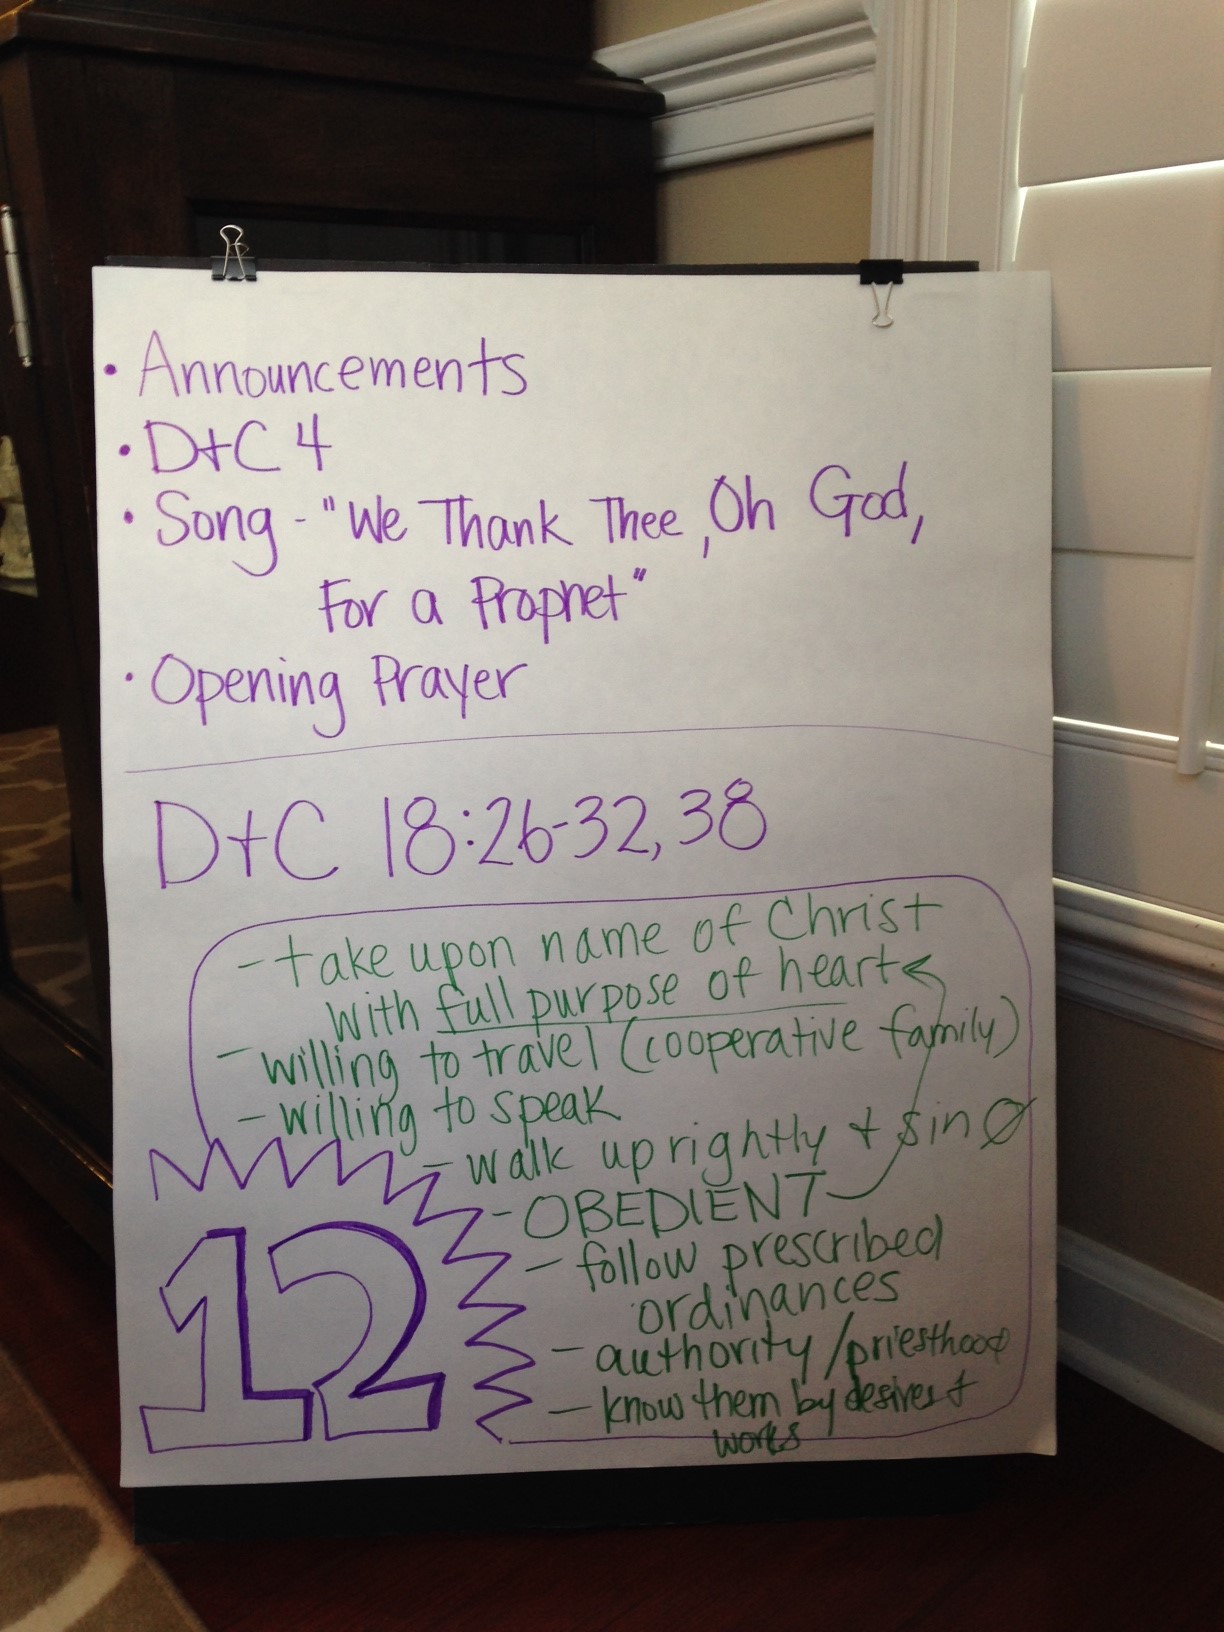 • Announcements
• D+C 4
• Song - "We Thank Thee, Oh God,
For a Prophet"
• Opening Prayer
D+C 18:26-32, 38
- take upon name of Christ
with full purpose of heart
- willing to travel (cooperative family)
- willing to speak
- walk uprightly + sin Ø
- OBEDIENT
- follow prescribed
ordinances
- authority/priesthood
- know them by desires +
works
12